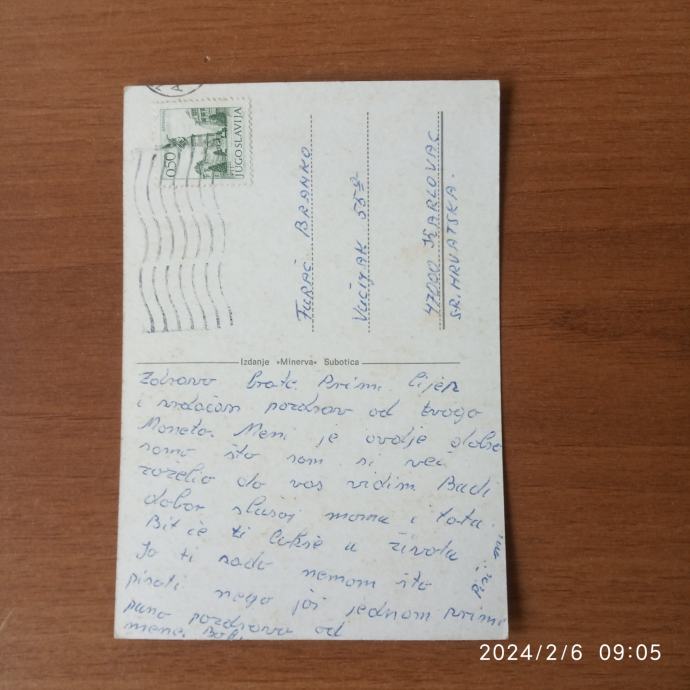 0,50
JUGOSLAVIJA
FURAČ BRANKO
VUČIJAK 55
47000 KARLOVAC
SR. HRVATSKA.
Izdanje »Minerva« Subotica
Zdravo brate. Primi lijep
i srdačan pozdrav od tvoga
Meni je ovdje dobro
samo što sam se već
zaželio da vas vidim. Budi
dobar slušaj mama i tata.
Bit će ti lakše u životu
Ja ti sada nemam što
pisati nego još jednom primi
puno pozdrava od
mene.
Piši mi
2024/2/6 09:05